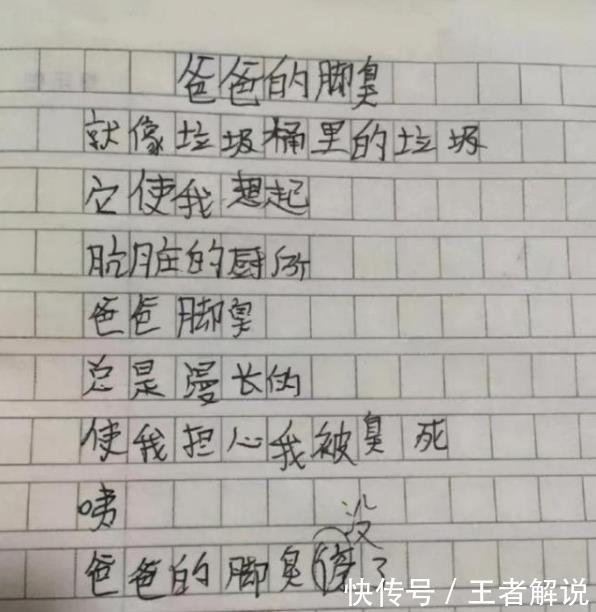 爸爸的脚臭
就像垃圾桶里的垃圾
它使我想起
肮脏的厕所
爸爸脚臭
总是漫长的
使我担心我被臭死
咦
没
爸爸的脚臭停了
快传号/王者解说